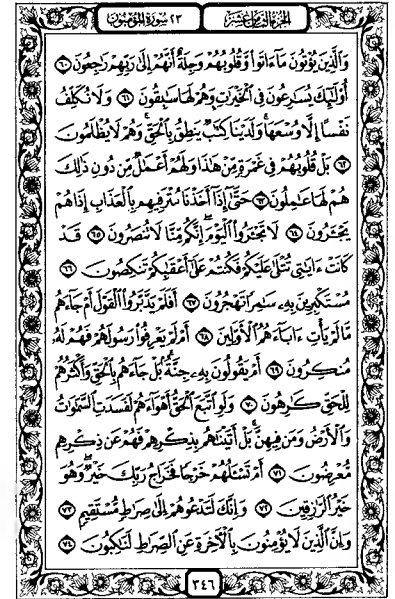 سورة المؤمنون ٢٣ الجزء الثامن عشر
وَالَّذِينَ يُؤْتُونَ مَا ءَاتَوا وَّقُلُوبُهُمْ وَجِلَةٌ أَنَّهُمْ إِلَىٰ رَبِّهِمْ رَاجِعُونَ ٦٠
أُولَٰئِكَ يُسَارِعُونَ فِي الْخَيْرَاتِ وَهُمْ لَهَا سَابِقُونَ ٦١ وَلَا نُكَلِّفُ
نَفْسًا إِلَّا وُسْعَهَا وَلَدَيْنَا كِتَابٌ يَنطِقُ بِالْحَقِّ وَهُمْ لَا يُظْلَمُونَ
٦٢ بَلْ قُلُوبُهُمْ فِي غَمْرَةٍ مِّنْ هَٰذَا وَلَهُمْ أَعْمَالٌ مِّن دُونِ ذَٰلِكَ
هُمْ لَهَا عَامِلُونَ ٦٣ حَتَّىٰ إِذَا أَخَذْنَا مُتْرَفِيهِم بِالْعَذَابِ إِذَا هُمْ
يَجْـَٔرُونَ ٦٤ لَا تَجْـَٔرُوا الْيَوْمَ إِنَّكُم مِّنَّا لَا تُنصَرُونَ ٦٥ قَدْ
كَانَتْ ءَايَاتِي تُتْلَىٰ عَلَيْكُمْ فَكُنتُمْ عَلَىٰ أَعْقَابِكُمْ تَنكِصُونَ ٦٦
مُسْتَكْبِرِينَ بِهِ سَامِرًا تَهْجُرُونَ ٦٧ أَفَلَمْ يَدَّبَّرُوا الْقَوْلَ أَمْ جَاءَهُم
مَّا لَمْ يَأْتِ ءَابَاءَهُمُ الْأَوَّلِينَ ٦٨ أَمْ لَمْ يَعْرِفُوا رَسُولَهُمْ فَهُمْ لَهُ
مُنكِرُونَ ٦٩ أَمْ يَقُولُونَ بِهِ جِنَّةٌ بَلْ جَاءَهُم بِالْحَقِّ وَأَكْثَرُهُمْ
لِلْحَقِّ كَارِهُونَ ٧٠ وَلَوِ اتَّبَعَ الْحَقُّ أَهْوَاءَهُمْ لَفَسَدَتِ السَّمَاوَاتُ
وَالْأَرْضُ وَمَن فِيهِنَّ بَلْ أَتَيْنَاهُم بِذِكْرِهِمْ فَهُمْ عَن ذِكْرِهِم
مُّعْرِضُونَ ٧١ أَمْ تَسْـَٔلُهُمْ خَرْجًا فَخَرَاجُ رَبِّكَ خَيْرٌ وَهُوَ
خَيْرُ الرَّازِقِينَ ٧٢ وَإِنَّكَ لَتَدْعُوهُمْ إِلَىٰ صِرَاطٍ مُّسْتَقِيمٍ ٧٣
وَإِنَّ الَّذِينَ لَا يُؤْمِنُونَ بِالْآخِرَةِ عَنِ الصِّرَاطِ لَنَاكِبُونَ ٧٤
٣٤٦